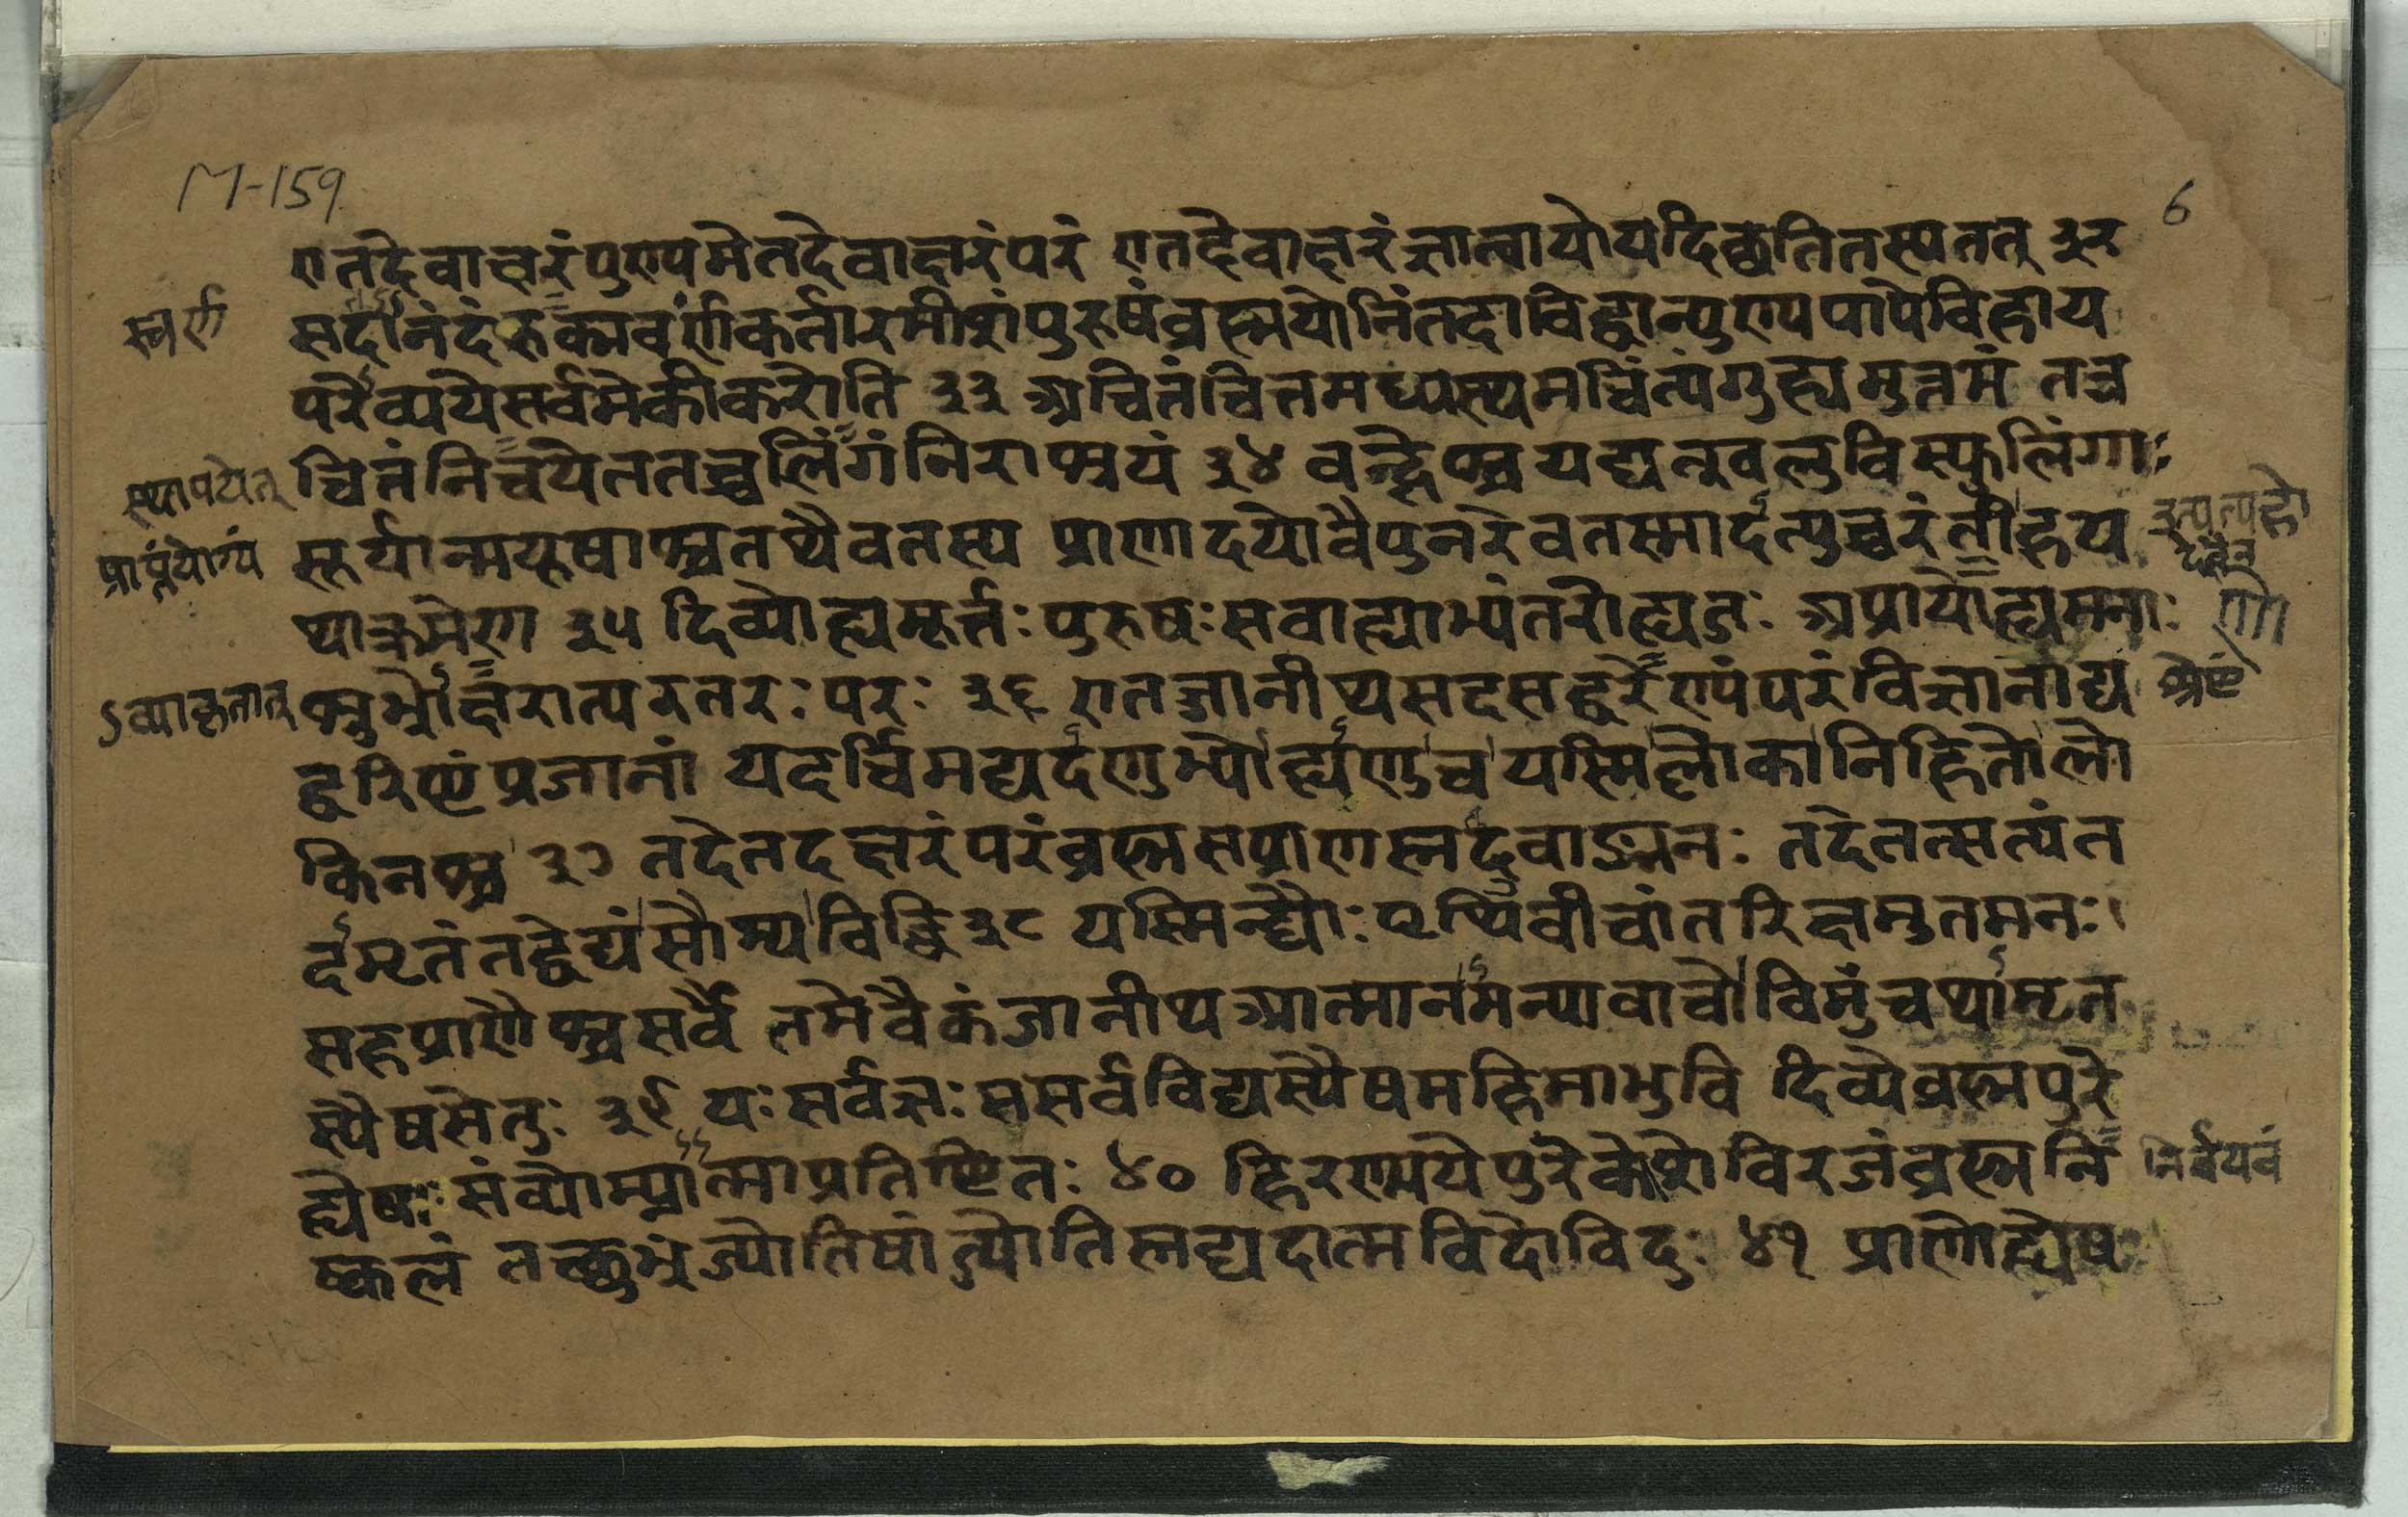 M-159
6
एतदेवाक्षरंपुण्यमेतदेवाक्षरंपरं एतदेवाक्षरंज्ञात्वायोयदिछतितस्यतत् ३२
सदानंदंरुक्मवर्णंकर्तारमीशंपुरुषंब्रह्मयोनिंतदाविद्वान्पुण्यपापेविहाय
स्वर्ण
परेव्ययेसर्वमेकीकरोति ३३ अचित्तंचित्तमध्यस्थमचिंत्यंगुह्यमुत्तमं तत्र
चित्तंनिचयेततच्चलिंगंनिराश्रयं ३४ वन्हेश्चयद्यत्खलुविस्फुलिंगाः
स्थापयेत्
सूर्यान्मयूषाश्चतथैवतस्य प्राणादयोवैपुनरेवतस्मादत्युच्चरंतीहय
थाक्रमेण ३५ दिव्योह्यमूर्त्तः पुरुषः सबाह्याभ्यंतरोह्यजः अप्राणोह्यमनाः
णो
शुभ्रोक्षरात्परतरः परः ३६ एतज्जानीथसदसद्वरेण्यंपरंविज्ञानाद्य
ऽव्याकृतात् श्रेष्टं
द्वरिष्टंप्रजानां यदर्चिमद्यदणुभ्योह्यणुचयस्मिंल्लोकानिहितोलो
किनश्च ३७ तदेतदक्षरंपरंब्रह्मसप्राणस्तदुवाङ्मनः तदेतत्सत्यंत
दमृतंतद्वेद्यंसौम्यविद्धि ३८ यस्मिन्द्यौः पृथिवीचांतरिक्षमुतमनः
सहप्राणैश्चसर्वै तमेवैकंजानीथआत्मानमन्यावाचोविमुंचथामृत
स्यैषसेतुः ३९ यः सर्वज्ञः ससर्वविद्यस्यैषमहिमाभुवि दिव्येब्रह्मपुरे
ह्येषः संव्योम्न्यात्माप्रतिष्टितः ४० हिरण्मयेपुरेकोशेविरजंब्रह्मनि
निर्वयवं
ष्कलं तच्छुभ्रंज्योतिषांज्योतिस्तद्यदात्मविदोविदुः ४१ प्राणोह्येष